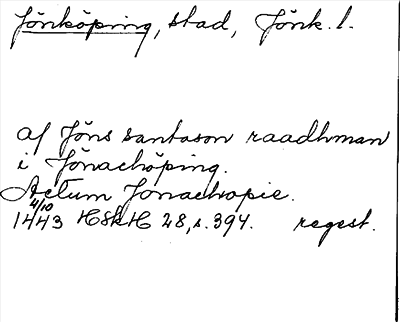 Jönköping, stad, Jönk. l.
af Jöns santason raadhman
i Jönachöping.
Actum Jonachopie.
4/10
1443 HSkH 28, s. 394. regest.